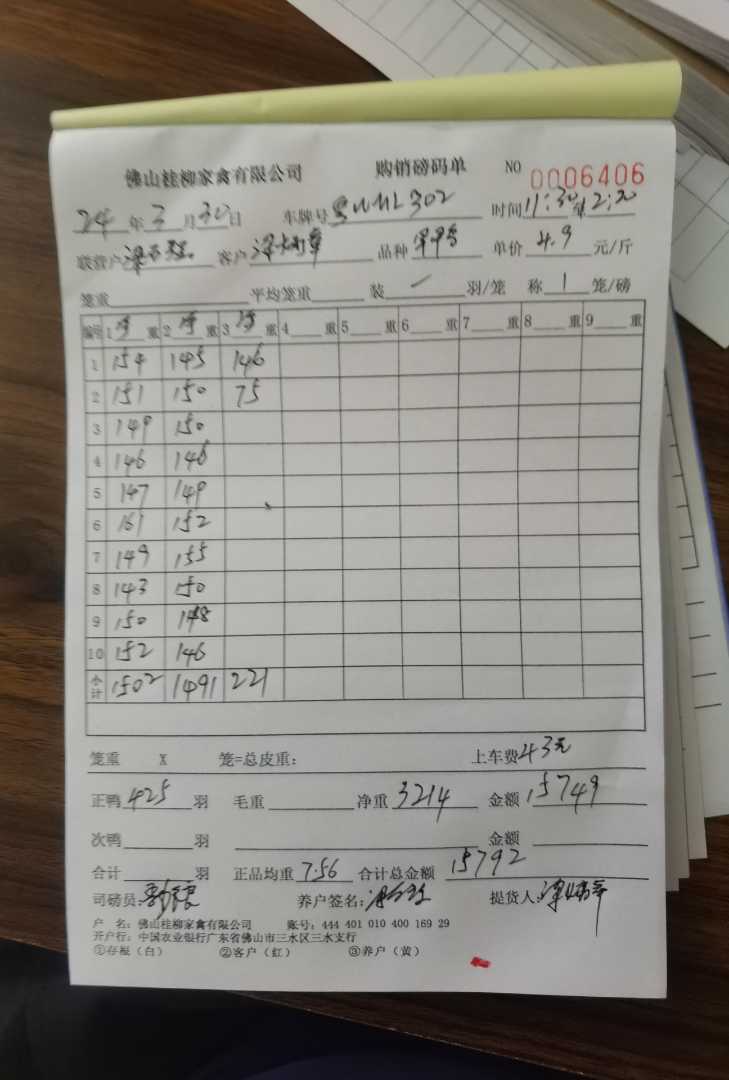 佛山桂柳家禽有限公司 购销磅码单 NO 0006406
24年3月30日 车牌号 302 时间11:30至12:20
联营户 客户 品种 单价4.9元/斤
笼重 平均笼重 装一羽/笼 称1笼/磅
编号 1净重 2净重 3净重 4重 5重 6重 7重 8重 9重
1 154 145 146
2 151 150 75
3 149 150
4 146 146
5 147 149
6 161 152
7 149 155
8 143 150
9 150 148
10 152 146
小计 1502 1491 221
笼重 X 笼=总皮重: 上车费43元
正鸭425羽 毛重 净重3214 金额15749
次鸭 羽 金额
合计 羽 正品均重7.56 合计总金额15792
司磅员: 养户签名: 提货人:
户 名: 佛山桂柳家禽有限公司 账号: 444 401 010 400 169 29
开户行: 中国农业银行广东省佛山市三水区三水支行
①存根(白) ②客户(红) ③养户(黄)